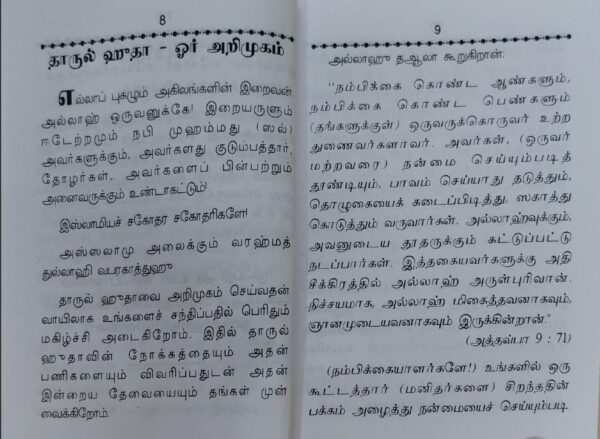 8
தாருல் ஹுதா - ஓர் அறிமுகம்
எல்லாப் புகழும் அகிலங்களின் இறைவன்
அல்லாஹ் ஒருவனுக்கே! இறையருளும்
ஈடேற்றமும் நபி முஹம்மது (ஸல்)
அவர்களுக்கும், அவர்களது குடும்பத்தார்,
தோழர்கள், அவர்களைப் பின்பற்றும்
அனைவருக்கும் உண்டாகட்டும்!
இஸ்லாமியச் சகோதர சகோதரிகளே!
அஸ்ஸலாமு அலைக்கும் வரஹ்மத்
துல்லாஹி வபரகாத்துஹு
தாருல் ஹுதாவை அறிமுகம் செய்வதன்
வாயிலாக உங்களைச் சந்திப்பதில் பெரிதும்
மகிழ்ச்சி அடைகிறோம். இதில் தாருல்
ஹுதாவின் நோக்கத்தையும் அதன்
பணிகளையும் விவரிப்பதுடன் அதன்
இன்றைய தேவையையும் தங்கள் முன்
வைக்கிறோம்.
9
அல்லாஹு தஆலா கூறுகிறான்:
"நம்பிக்கை கொண்ட ஆண்களும்,
நம்பிக்கை கொண்ட பெண்களும்
(தங்களுக்குள்) ஒருவருக்கொருவர் உற்ற
துணைவர்களாவர். அவர்கள், (ஒருவர்
மற்றவரை) நன்மை செய்யும்படித்
தூண்டியும், பாவம் செய்யாது தடுத்தும்,
தொழுகையைக் கடைப்பிடித்து, ஸகாத்து
கொடுத்தும் வருவார்கள். அல்லாஹ்வுக்கும்,
அவனுடைய தூதருக்கும் கட்டுப்பட்டு
நடப்பார்கள். இத்தகையவர்களுக்கு அதி
சீக்கிரத்தில் அல்லாஹ் அருள்புரிவான்.
நிச்சயமாக, அல்லாஹ் மிகைத்தவனாகவும்,
ஞானமுடையவனாகவும் இருக்கின்றான்."
(அத்தவ்பா 9 : 71)
(நம்பிக்கையாளர்களே!) உங்களில் ஒரு
கூட்டத்தார் (மனிதர்களை) சிறந்ததின்
பக்கம் அழைத்து நன்மையைச் செய்யும்படி